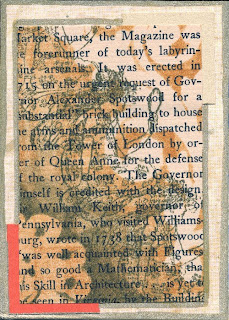 arket Square, the Magazine was
e forerunner of today's labyrin-
ine arsenals. It was erected in
715 on the urgent request of Gov-
nor Alexander Spotswood for a
substantial brick building to house
he arms and ammunition dispatched
from the Tower of London by or-
er of Queen Anne for the defense
f the royal colony. The Governor
mself is credited with the design,
or William Keith, governor of
ennsylvania, who visited Williams-
burg, wrote in 1738 that Spotswood
was well acquainted with Figures
nd so good a Mathematician, tha
is Skill in Architecture . . . is yet to
be seen in Virginia, by the Building